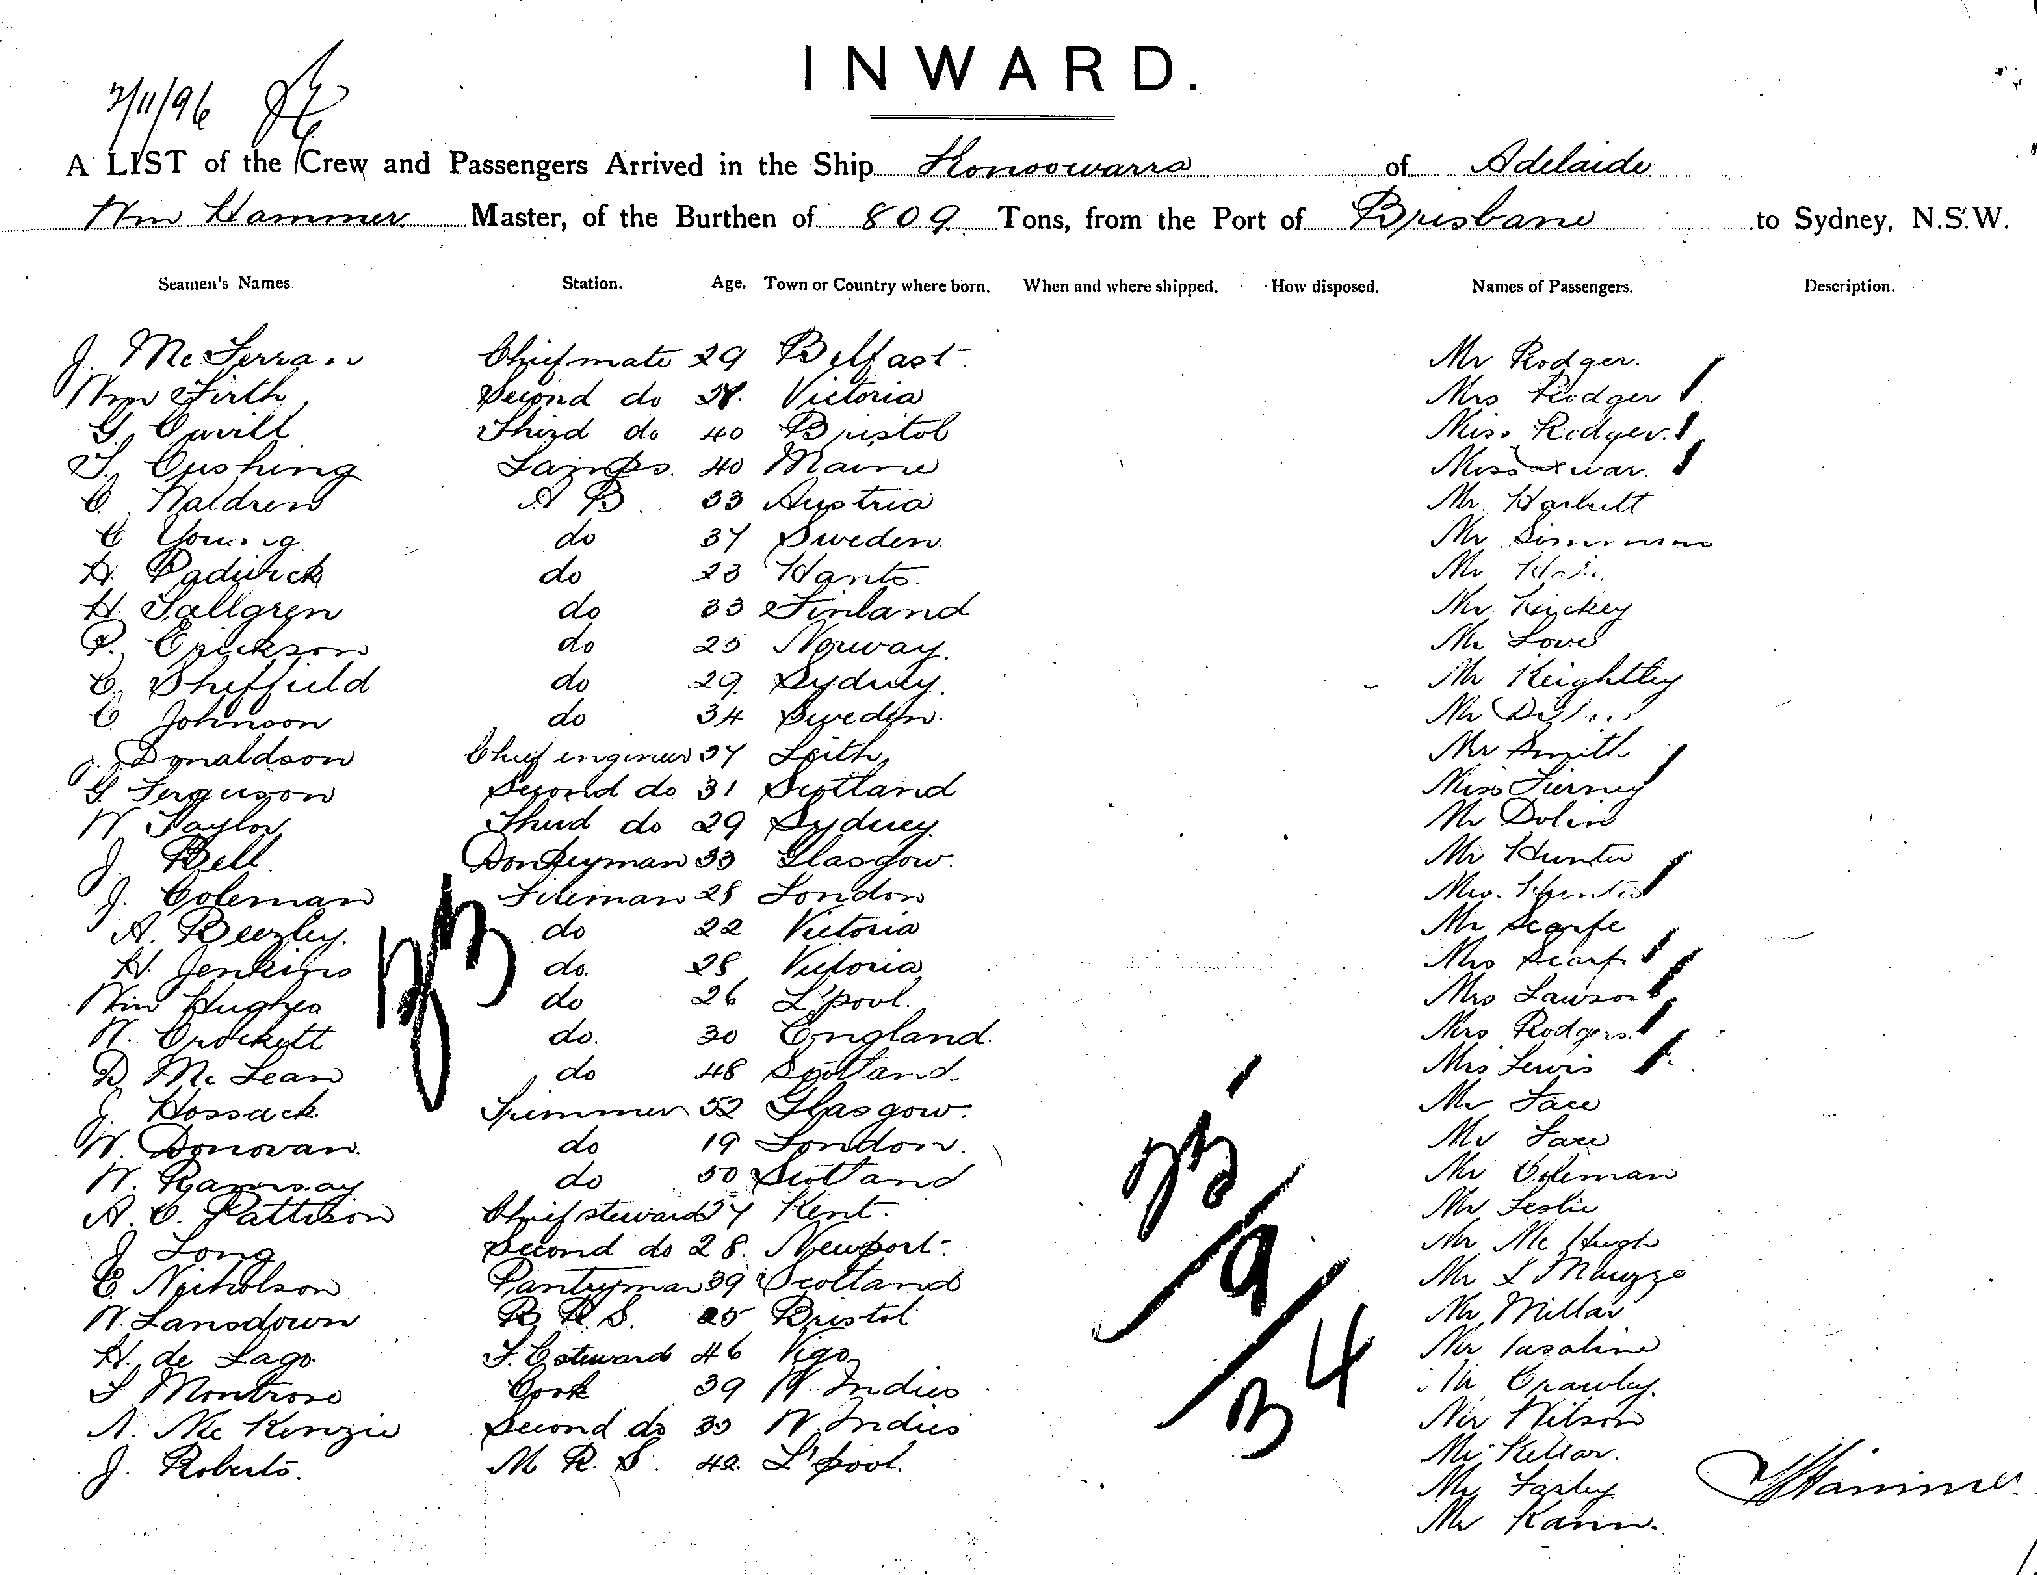 INWARD.
2/11/96
A LIST of the Crew and Passengers Arrived in the Ship Konoowarra of Adelaide
Wm Hammer Master, of the Burthen of 809 Tons, from the Port of Brisbane to Sydney, N.S.W.
Seamen's Names. Station. Age. Town or Country where born. When and where shipped. How disposed. Names of Passengers. Description.
J. McFerran Chief mate 29 Belfast Mr Rodger
Wm Firth Second do Victoria Mrs Rodger
G. Cavill Third do 40 Bristol Miss Rodger
T. Cushing Lamps 40 Maine Miss
C. Waldren A B 33 Austria Mr
C Young do 37 Sweden Mr
H. Padwick do 23 Hants Mr
H. Sallgren do 33 Finland Mr Hickey
P. Erickson do 25 Norway Mr Love
C. Sheffield do 29 Sydney Mr Keightley
C Johnson do 34 Sweden Mr
J. Donaldson Chief engineer 37 Leith Mr Smith
G Ferguson Second do 31 Scotland Miss Tierney
W Taylor Third do 29 Sydney Mr Dolin
J. Bell Donkeyman 33 Glasgow Mr Hunter
J. Coleman Fireman 28 London Mrs Hunter
A. Beezley do 22 Victoria Mr Scarfe
H. Jenkins do 28 Victoria Mrs Scarfe
Wm Hughes do 26 L'pool Mrs Lawson
W. Crockett do 30 England Mrs Rodgers
D. McLean do 48 Scotland Mrs Lewis
J. Hossack Trimmer 52 Glasgow Mr Face
W. Donovan do 19 London Mr Face
W. Ramsay do 50 Scotland Mr Coleman
A. C. Pattison Chief steward 37 Kent Mr Leslie
J Long Second do 28 Newport Mr McHugh
C Nicholson Pantryman 39 Scotland Mr
W. Lansdown B R S. 25 Bristol Mr Millar
H. de Lago F. C steward 46 Vigo Mr
S Montrose Cook 39 W. Indies Mr Crawley
A. McKenzie Second do 35 W. Indies Mr Wilson
J. Roberts M R. S. 42 L'pool Mr Kellar
Mr Farley
Mr Kann
Hammer
33
25
9
34